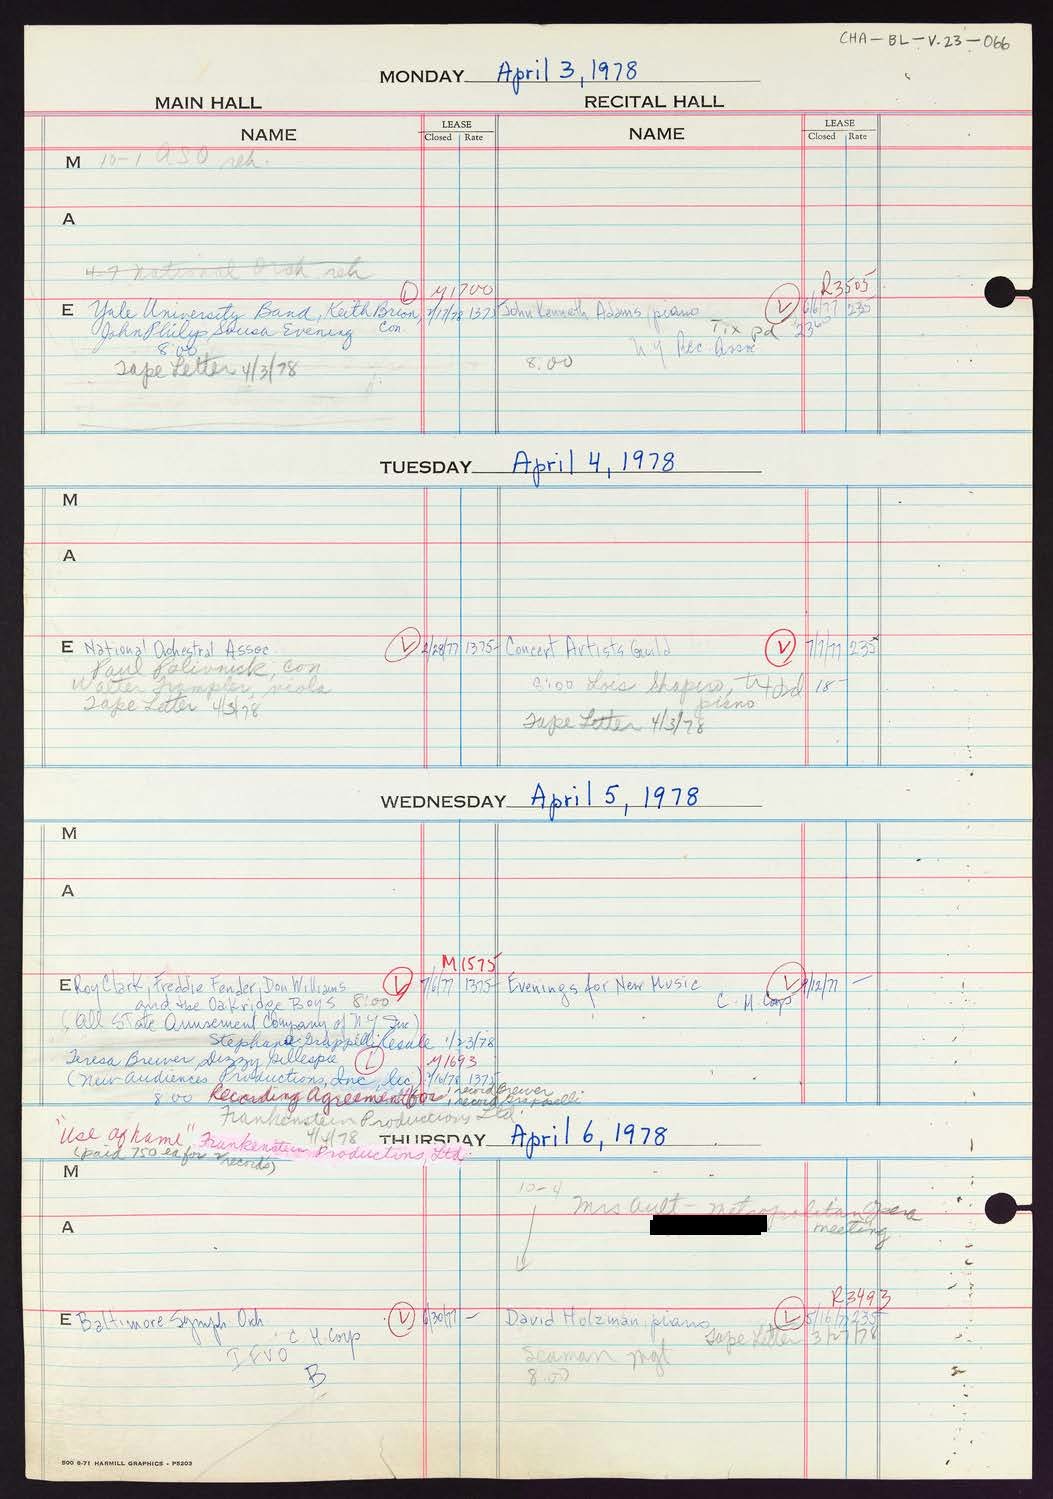 CHA-BL-V.23-066
MONDAY April 3, 1978
MAIN HALL RECITAL HALL
NAME LEASE Closed Rate NAME LEASE Closed Rate
M 10-1 ASO reh.
A
4-7 National Orch reh
L M1700 R3505
E Yale University Band, Keith Brion, 1375 John Kenneth Adams, piano L 6/6/77 235
John Philip Sousa Evening Con. Tix pd 23
8:00 NY Rec Assoc
Tape Letter 4/3/78 8:00
TUESDAY April 4, 1978
M
A
E National Orchestral Assoc. L 2/28/77 1375- Concert Artists Guild L 7/7/77 235
Paul Polivnick, con
Walter Trampler, viola 8:00 Lois Shapiro, tix pd 18-
Tape Letter 4/3/78 piano
Tape Letter 4/3/78
WEDNESDAY April 5, 1978
M
A
M1575
E Roy Clark, Freddie Fender, Don Williams L 7/6/77 1375- Evenings for New Music L 9/12/77 -
and the Oakridge Boys 8:00 C. H. Corp
(All State Amusement Company of NY Inc)
Stephane Grappelli Resale 1/23/78
Teresa Brewer, Dizzy Gillespie L M1693
(New Audiences Productions, Inc, 1375
8:00 Recording Agreement for record Brewer
record Grappelli
Frankenstein Productions Ltd.
4/4/78
"Use of name" Frankenstein Productions, Ltd.
(paid 750 ea for 2 records)
THURSDAY April 6, 1978
M
10-4
Mrs Ault - Metropolitan Opera
A meeting
R3493
E Baltimore Symph Orch L 6/30/77 - David Holzman, piano L 5/16/77 235
C. H. Corp Tape Letter 3/27/78
IFVO Seaman Mgt
B 8:00
500 6-71 HARMILL GRAPHICS - P5203